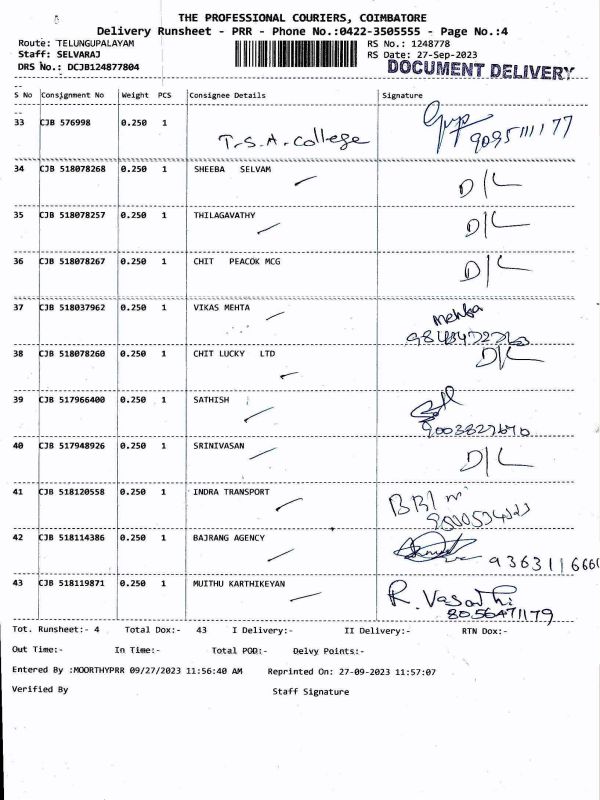 THE PROFESSIONAL COURIERS, COIMBATORE
Delivery Runsheet - PRR - Phone No.:0422-3505555 - Page No.:4
Route: TELUNGUPALAYAM RS No.: 1248778
Staff: SELVARAJ RS Date: 27-Sep-2023
DRS No.: DCJB124877804 DOCUMENT DELIVERY
S No Consignment No Weight PCS Consignee Details Signature
33 CJB 576998 0.250 1 T.S.A. College 9095111177
34 CJB 518078268 0.250 1 SHEEBA SELVAM D/L
35 CJB 518078257 0.250 1 THILAGAVATHY D/L
36 CJB 518078267 0.250 1 CHIT PEACOK MCG D/L
37 CJB 518037962 0.250 1 VIKAS MEHTA Mehta
38 CJB 518078260 0.250 1 CHIT LUCKY LTD D/L
39 CJB 517966400 0.250 1 SATHISH
40 CJB 517948926 0.250 1 SRINIVASAN D/L
41 CJB 518120558 0.250 1 INDRA TRANSPORT
42 CJB 518114386 0.250 1 BAJRANG AGENCY 936311666
43 CJB 518119871 0.250 1 MUITHU KARTHIKEYAN R. Vasanthi
8056471179
Tot. Runsheet:- 4 Total Dox:- 43 I Delivery:- II Delivery:- RTN Dox:-
Out Time:- In Time:- Total POD:- Delvy Points:-
Entered By :MOORTHYPRR 09/27/2023 11:56:40 AM Reprinted On: 27-09-2023 11:57:07
Verified By Staff Signature